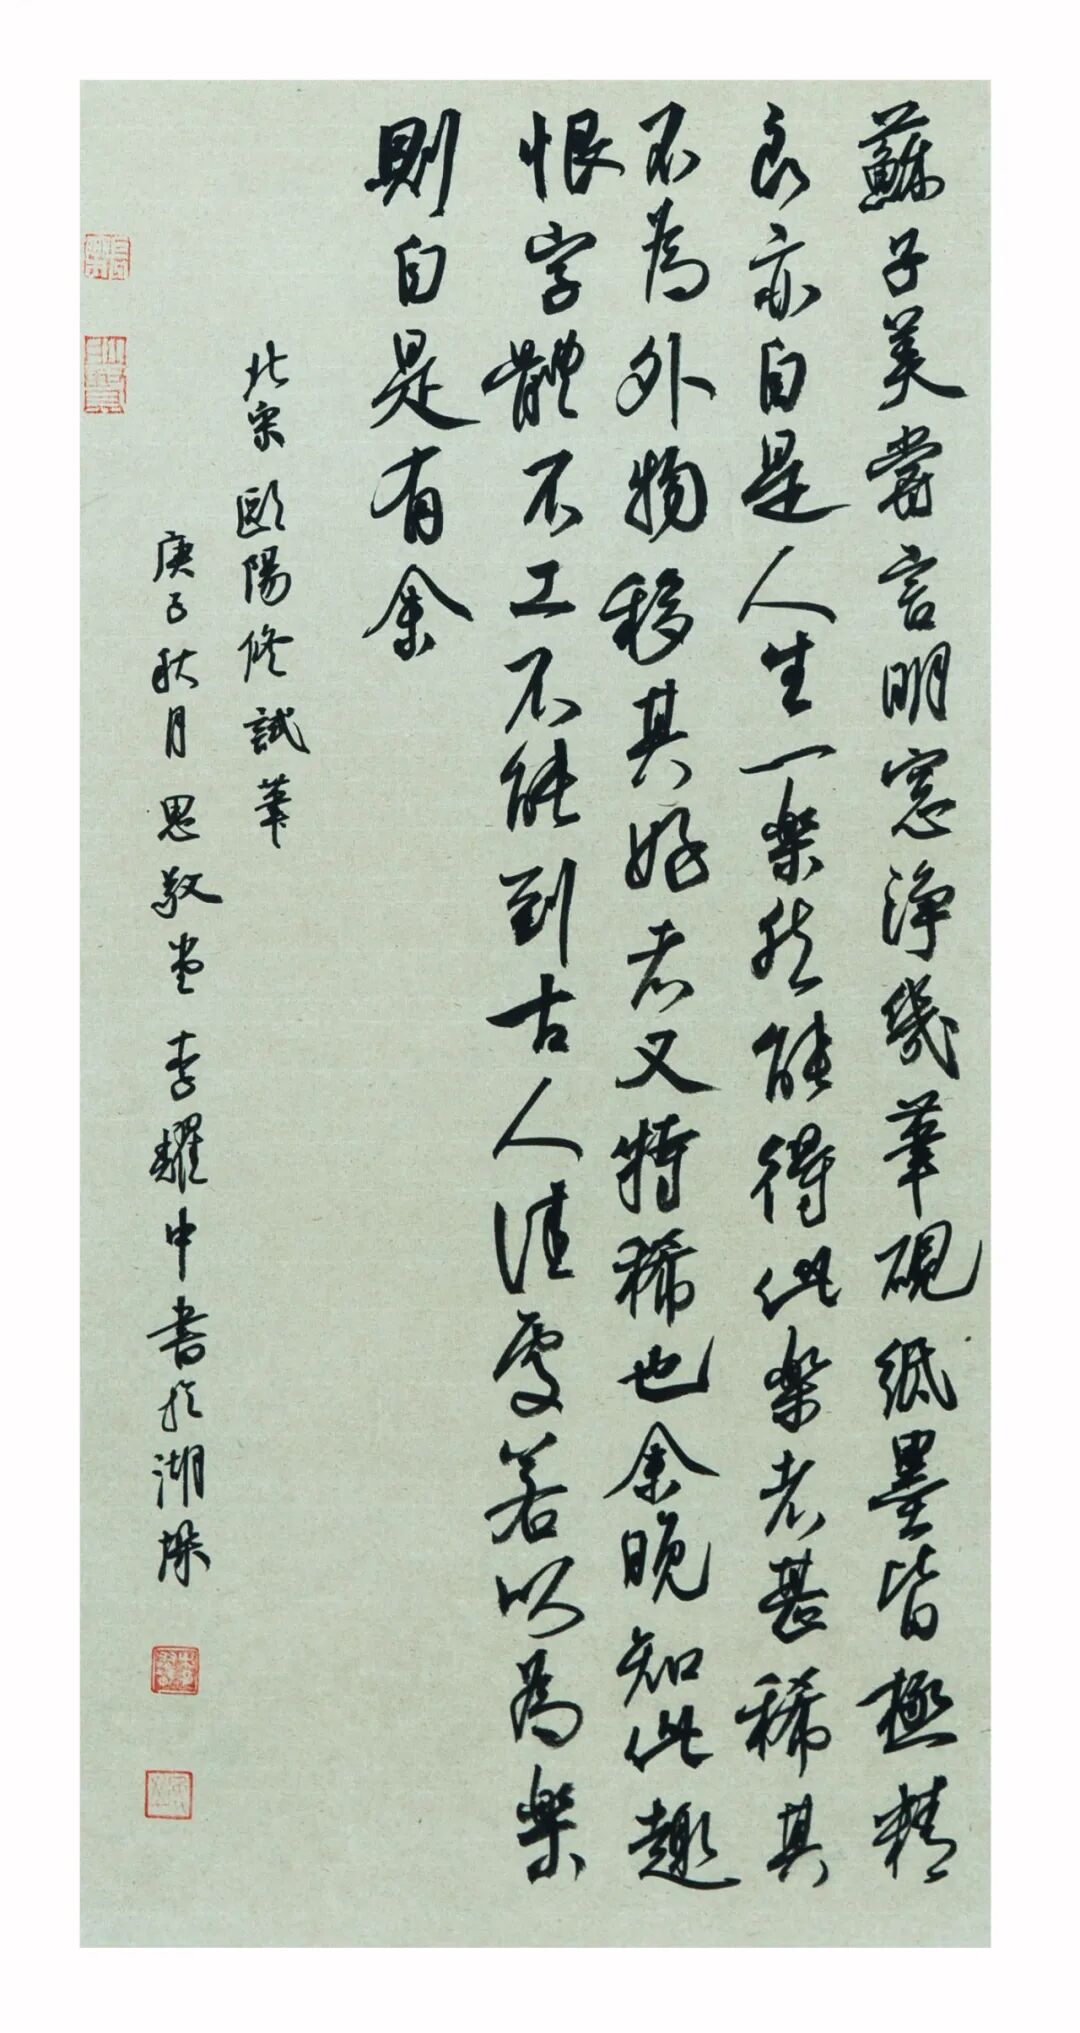 蘇子美嘗言明窓淨幾筆硯紙墨皆極精
良亦自是人生一樂然能得此樂者甚稀其
不為外物移其好者又特稀也余晚知此趣
恨字體不工不能到古人佳處若以為樂
則自是有余
北宋歐陽修試筆
庚子秋月思敬堂李耀中書於湖埰